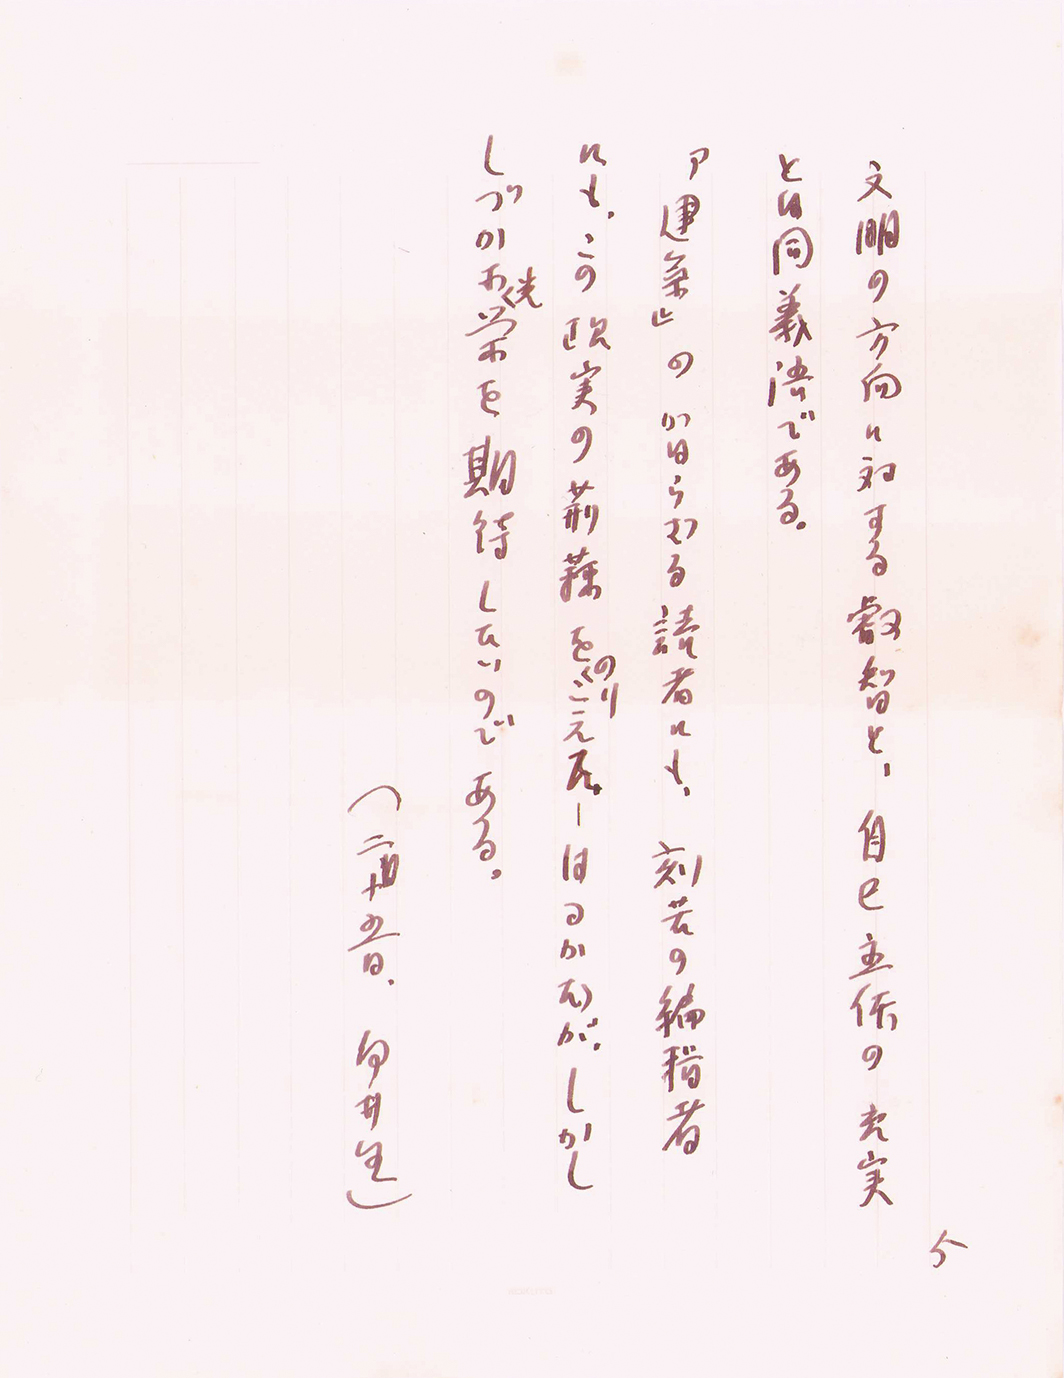 文明の方向に対する叡智と、自己主体の充実
とは同義語である。
「運命」のかはらざる読者にも、刻苦の編輯者
にも、この現実の荊蕀をのりこえた、はるかだが、しかし
しづかな光栄を期待したいのである。
(二十五日、白井生)
5